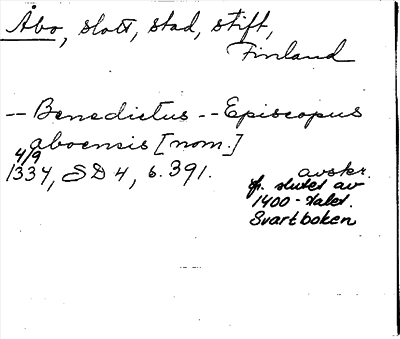 Åbo, slott, stad, stift,
Finland
-- Benedictus -- Episcopus
aboensis [nom.]
4/9
1334, SD 4, s. 391.
avskr.
fr. slutet av
1400-talet.
Svartboken